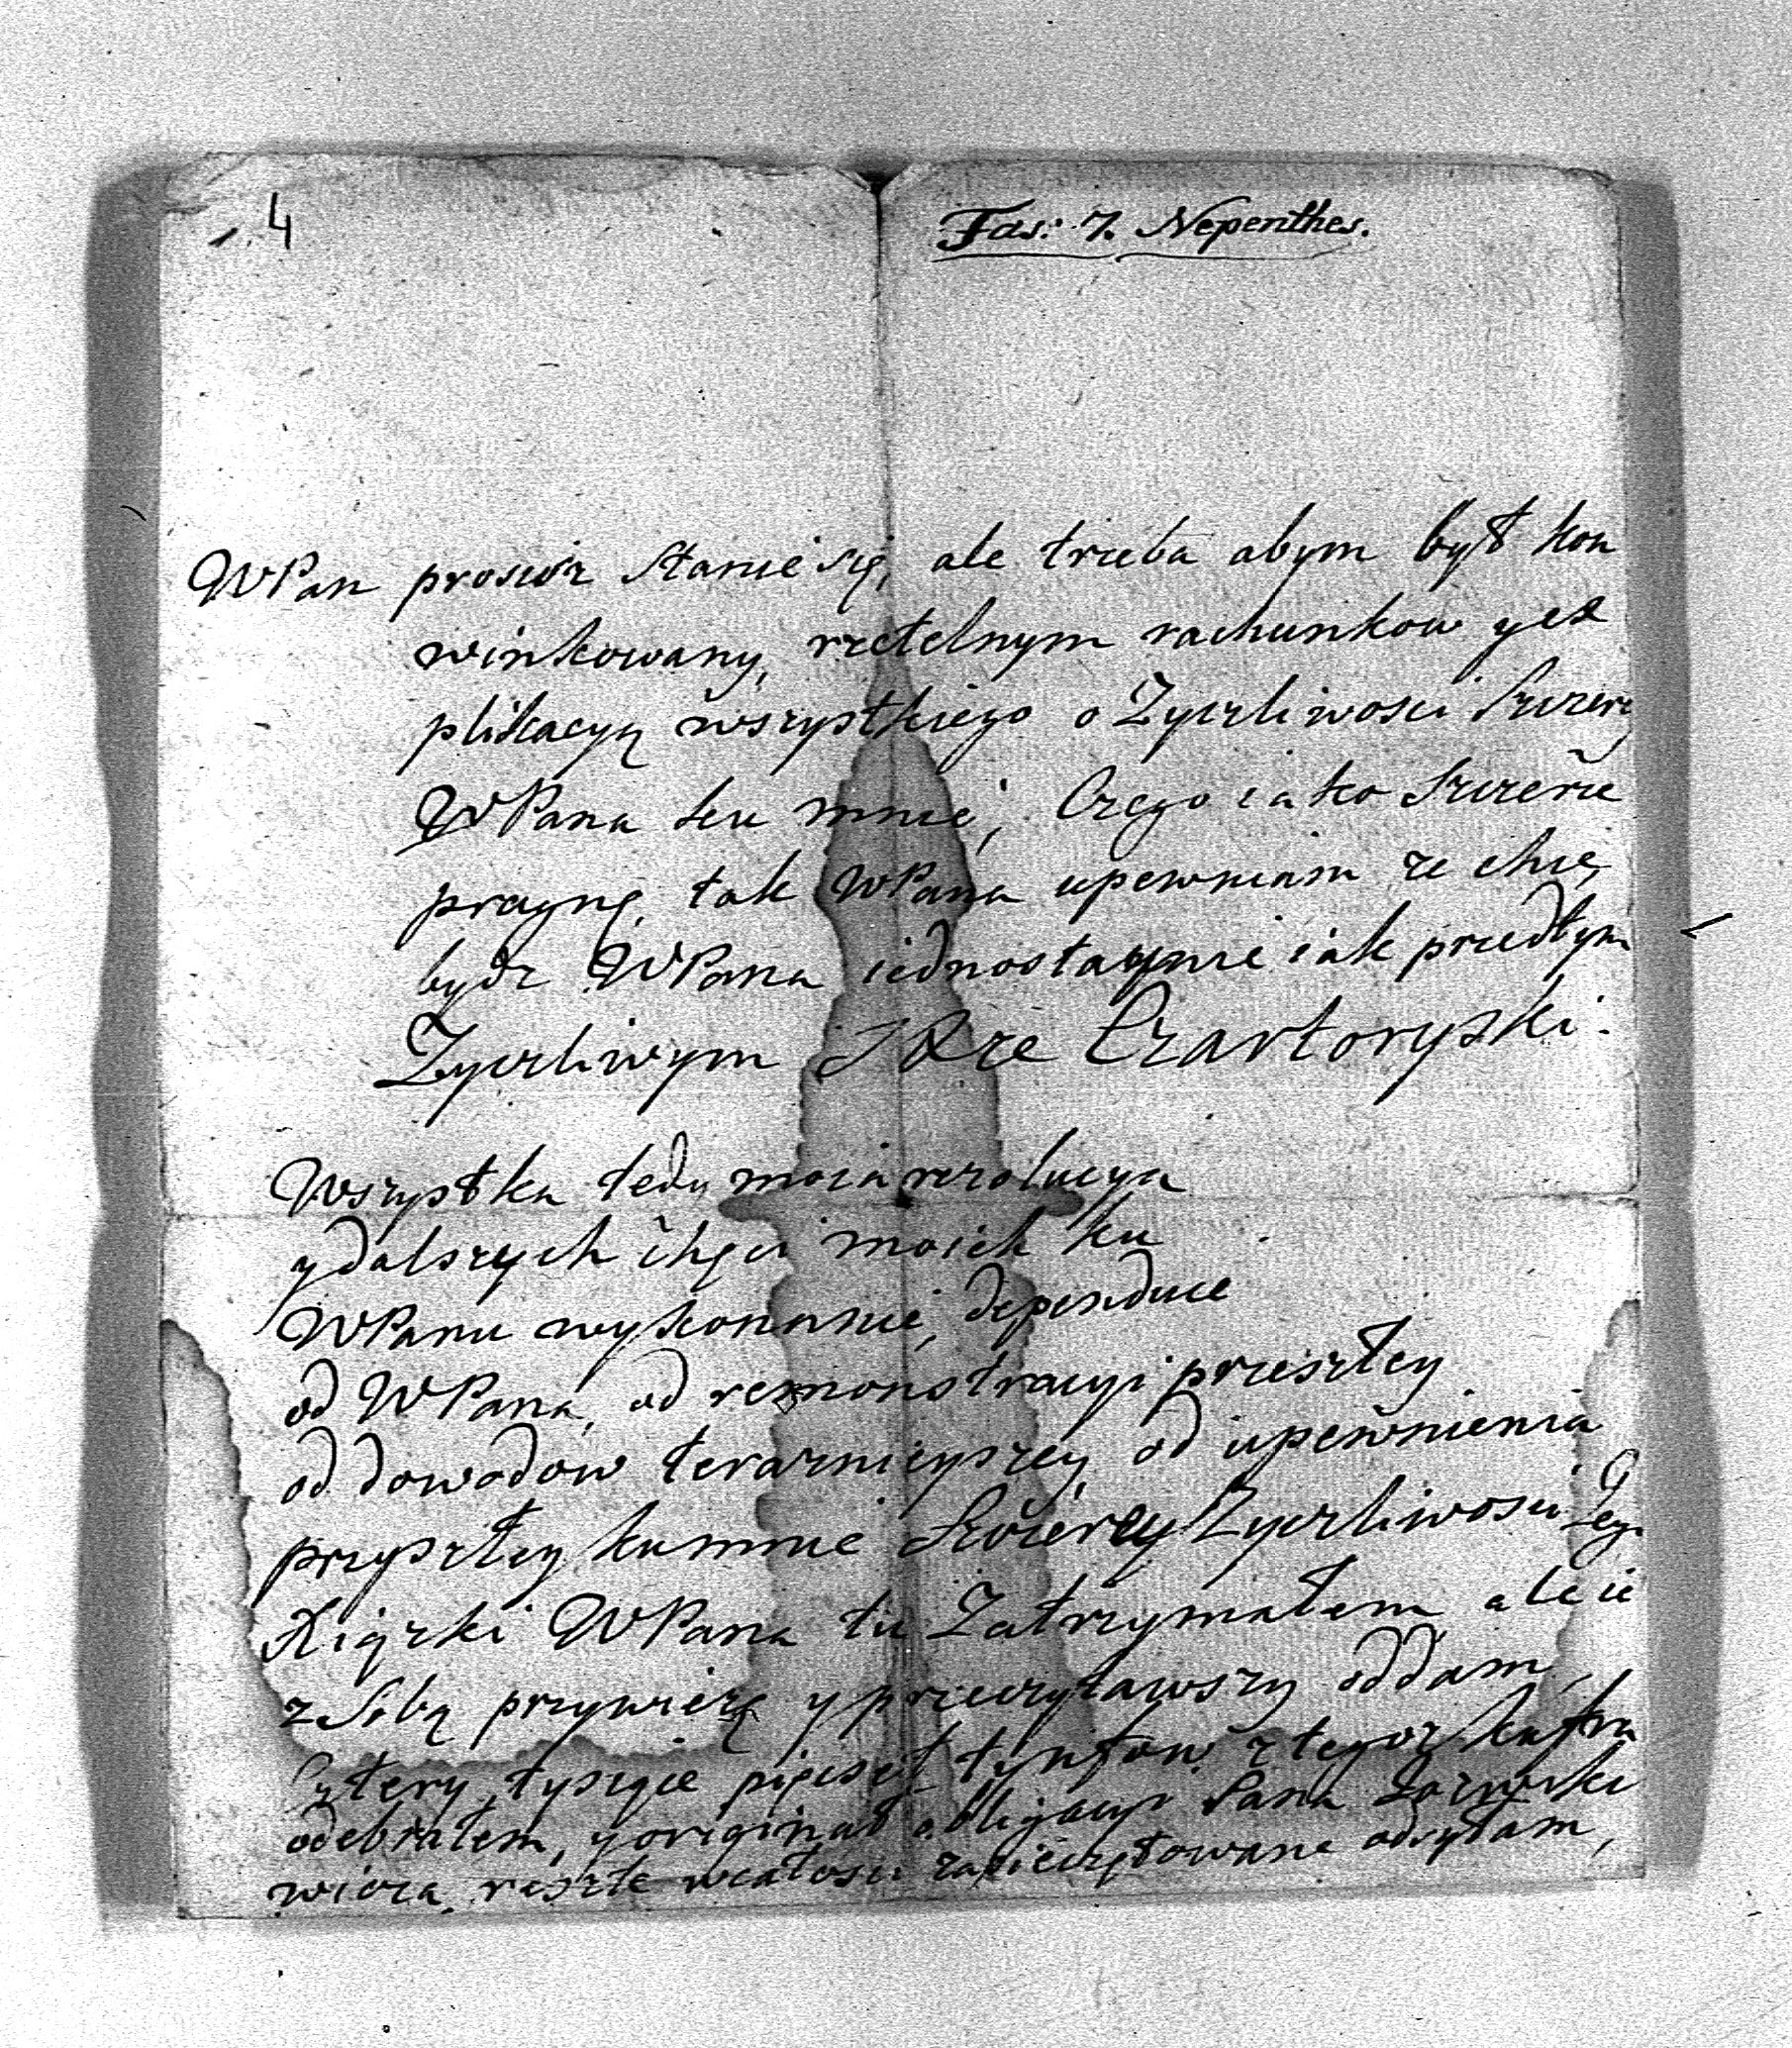 4
Fas: 7. Nepenthes.
WPan prosisz stanie się, ale trzeba abym był kon
winkowany, rzetelnym rachunkow y ex
plikacyą wszystkiego o Zyczliwosci Szczerey
WPana ku mnie, Czego iako Szczerze
pragnę, tak WPana upewniam ze chcę
bydz WPana iednostaynie iak przedtym
Zyczliwym JXze Czartoryski.
Wszystka tedy moia rezolucya
y dalszych chęci moich ku
WPanu wykonanie, dependuie
od WPana, od remonstracyi przeszłey
od dowodow teraznieyszey, od upewnienia
przyszłey ku mnie Szczerey Zyczliwosci
Xiązki WPana tu Zatrzymałem ale ie
z Sobą przywiezę y przeczytawszy oddam,
Cztery tysiące pięcset tynfow z tegoz kufra
odebrałem, y originał obligacyi Pana
resztę wcałosci zapieczętowane odsyłam,